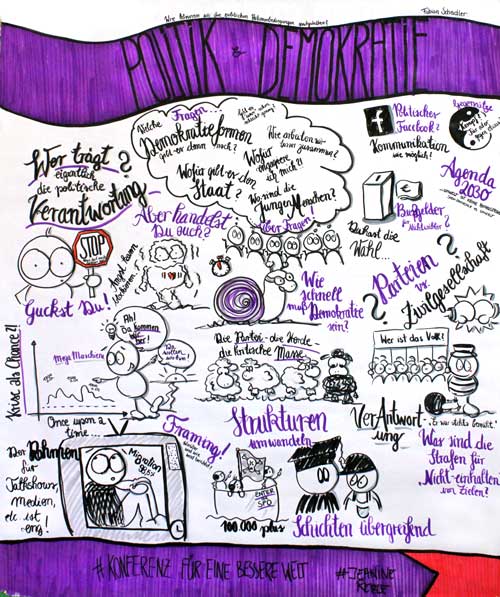 Wie können wir die politischen Rahmenbedingungen
Fabian Schindler
POLITIK & DEMOKRATIE
Fragen...
Welche
Demokratieformen
gibt es denn noch?
Wofür gibt es den
Staat?
Wofür
engagiere
ich mich?!
Wie arbeiten wir
zusammen?
Wo sind die
Jungen Menschen?
Über Fragen!
Wer trägt?
eigentlich
die politische
Verantwortung
STOP
Guckst Du!
Aber handelst
Du auch?
Angst kann
Politischer
Facebook?
Kommunikation
wie möglich!
Gegensätze
Kampf?
Agenda
2030
Bußgelder
für Nichtwähler?
Du hast die
Wahl...
Parteien
vs.
Zivilgesellschaft
?
?
Wie
schnell
muß
Demokratie
sein?
Krise als Chance?!
Ah!
Da kommen
wir her!
Mega Maschine
Once upon a
time...
Die Partei - die Herde
die kritische Masse
Wer ist das Volk?
Ver-Antwort-
ung
"Er war nichts gewählt."
Was sind die
Strafen für
"Nicht-einhalten
von Zielen?
Framing!
Strukturen
umwandeln
Der Rahmen
für
Talkshows,
medien,
etc ist
eng!
Migration
ENTER
SPD
100.000 plus
Schichten übergreifend
#KONFERENZ FÜR EINE BESSERE WELT
#JEANINE